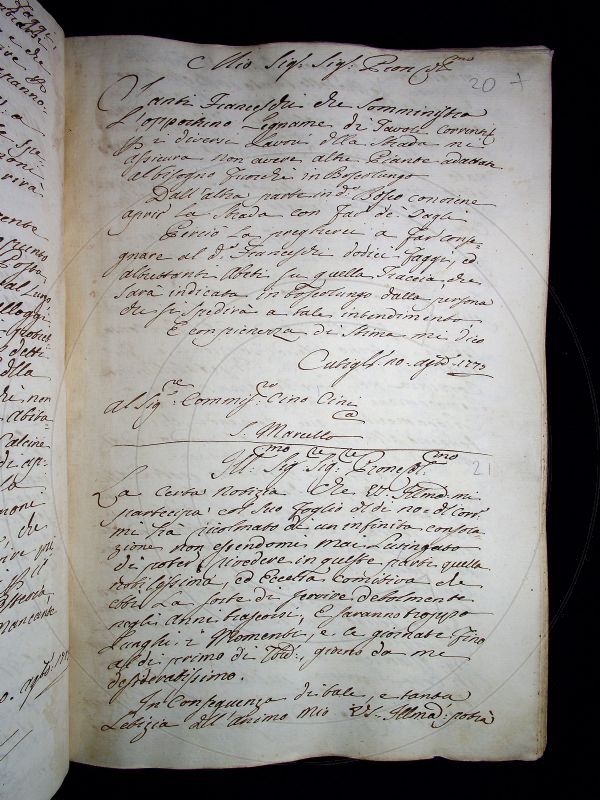 Mio Sig.r Sig.r Prone
20
Santi Franceschi che somministra
Legname di Tavole correnti
diversi Lavori della Strada mi
assicura non avere altre Piante adattate
al bisogno fuorchè in Boscolungo
Dall'altra parte in d.o Bosco conviene
aprir la Strada con far de Tagli
Perciò la pregherei a far conse-
gnare al d.o Franceschi dodici Faggi, ed
altrettanti Abeti su quella Traccia, che
sarà indicata in Boscolungo dalla persona
che si spedirà a tale intendimento
E con pienezza di Stima mi dico
Cutigl.
al Sig.re Commiss.rio Cino Cini
S. Marcello
21
Ill.mo Sig.re Sig.re
La certa notizia che VS. Illma mi
partecipa col suo foglio
mi hà ricolmato di un infinita consola-
zione non essendomi mai Lusingato
di poter rivedere in queste parti quella
nobilissima, ed Eccelsa Comitiva che
ebbi La sorte di servire debolmente
negli anni trascorsi, e saranno troppo
Lunghi i Momenti, e le giornate fino
al dì primo di giorno da me
desideratissimo.
In Conseguenza di tale, e tanta
Letizia dell'animo mio VS. Illma potrà